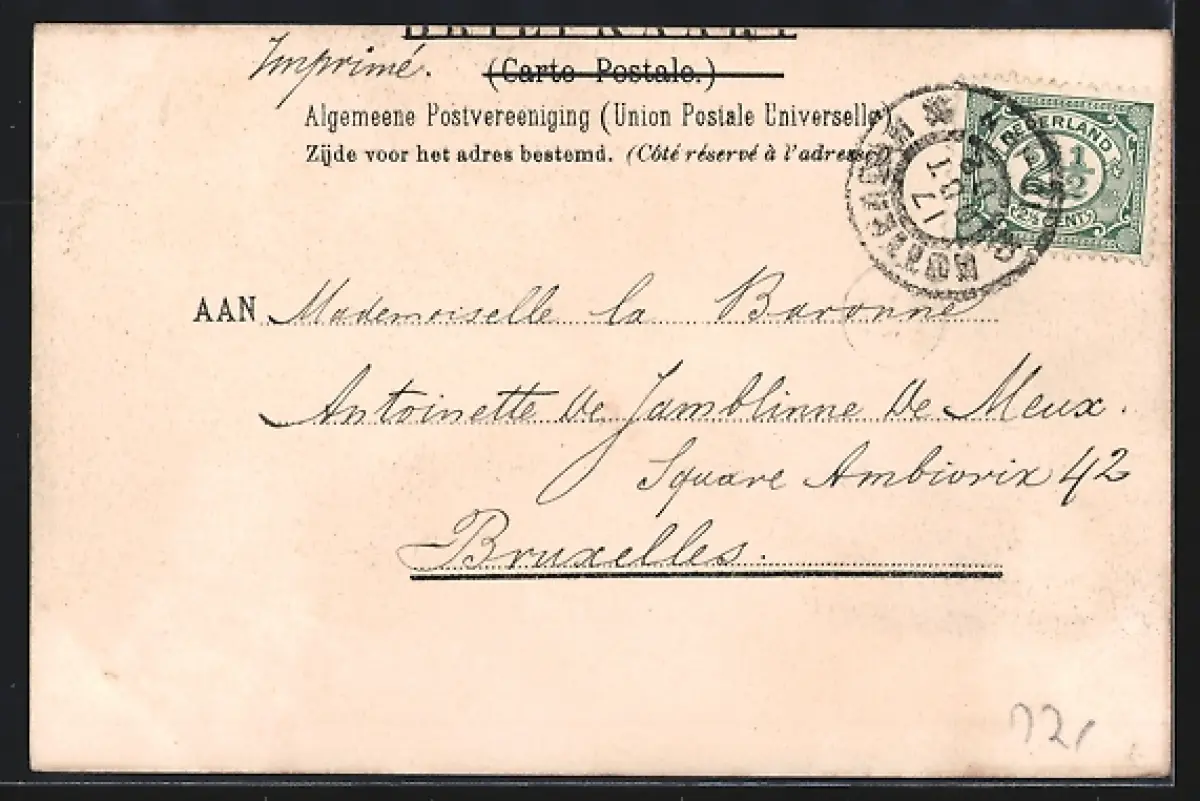 BRIEFKAART
Imprimé.
(Carte Postale.)
Algemeene Postvereeniging (Union Postale Universelle)
Zijde voor het adres bestemd. (Côté réservé à l'adresse)
NEDERLAND
2 1/2
(2½ CENT)
AAN Mademoiselle la Baronne
Antoinette De Jamblinne De Meux.
Square Ambiorix 42
Bruxelles.